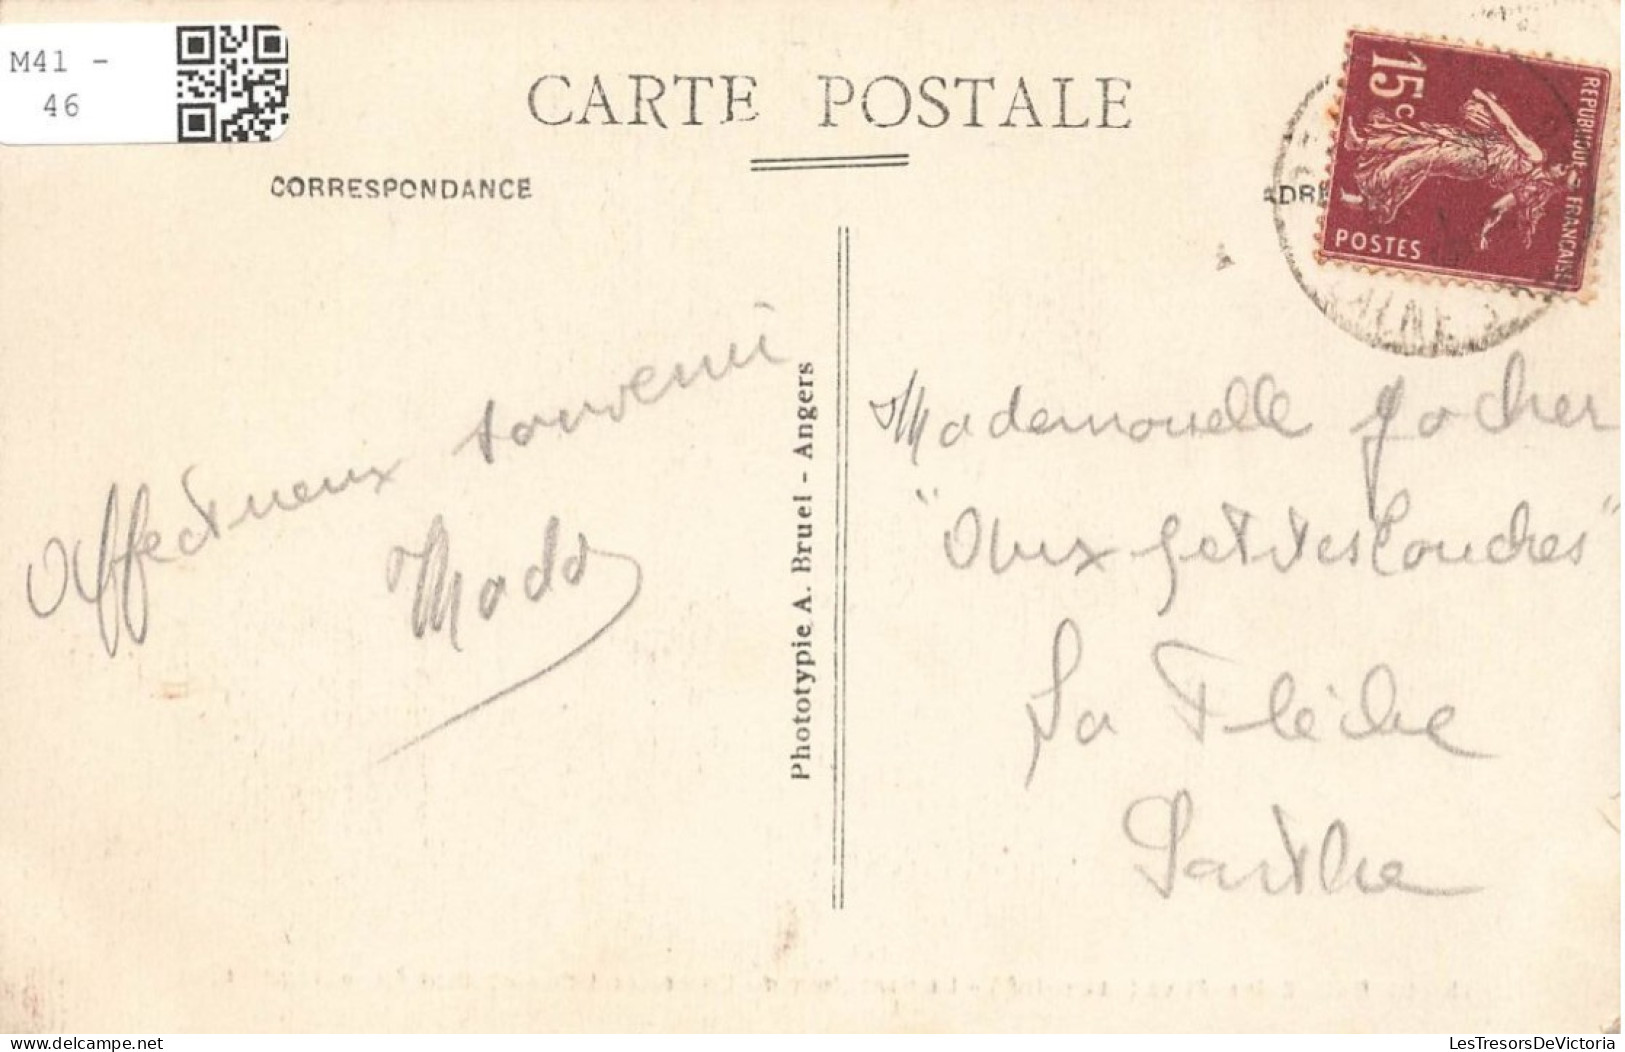 M41 -
46
CARTE POSTALE
CORRESPONDANCE
ADRE
15c
REPUBLIQUE FRANÇAISE
POSTES
Affectueux souvenir
Mado
Phototypie A. Bruel - Angers
Mademoiselle Gocher
"Aux petites Couches"
La Flèche
Sarthe
delcampe.net
LesTresorsDeVictoria